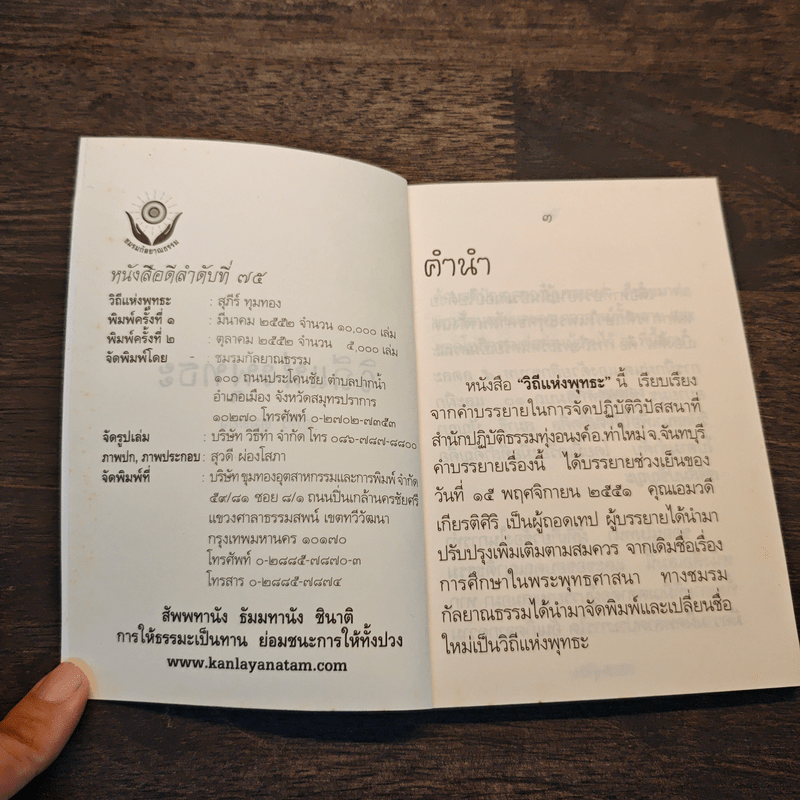 ชมรมกัลยาณธรรม
หนังสือดีลำดับที่ ๗๕
วิถีแห่งพุทธะ : สุภีร์ ทุมทอง
พิมพ์ครั้งที่ ๑ : มีนาคม ๒๕๕๒ จำนวน ๑๐,๐๐๐ เล่ม
พิมพ์ครั้งที่ ๒ : ตุลาคม ๒๕๕๒ จำนวน ๕,๐๐๐ เล่ม
จัดพิมพ์โดย : ชมรมกัลยาณธรรม
๑๐๐ ถนนประโคนชัย ตำบลปากน้ำ
อำเภอเมือง จังหวัดสมุทรปราการ
๑๐๒๗๐ โทรศัพท์ ๐-๒๗๐๒-๗๓๕๓
จัดรูปเล่ม : บริษัท วิธีทำ จำกัด โทร ๐๘๖-๗๘๗-๘๘๐๐
ภาพปก, ภาพประกอบ : สุวดี ผ่องโสภา
จัดพิมพ์ที่ : บริษัท ขุมทองอุตสาหกรรมและการพิมพ์ จำกัด
๕๙/๘๑ ซอย ๘/๑ ถนนปิ่นเกล้านครชัยศรี
แขวงศาลาธรรมสพน์ เขตทวีวัฒนา
กรุงเทพมหานคร ๑๐๑๗๐
โทรศัพท์ ๐-๒๘๘๕-๗๘๗๐-๓
โทรสาร ๐-๒๘๘๕-๗๘๗๔
สัพพทานัง ธัมมทานัง ชินาติ
การให้ธรรมะเป็นทาน ย่อมชนะการให้ทั้งปวง
www.kanlayanatam.com
๓
คำนำ
หนังสือ "วิถีแห่งพุทธะ" นี้ เรียบเรียง
จากคำบรรยายในการจัดปฏิบัติวิปัสสนาที่
สำนักปฏิบัติธรรมทุ่งอนงค์อ.ท่าใหม่ จ.จันทบุรี
คำบรรยายเรื่องนี้ ได้บรรยายช่วงเย็นของ
วันที่ ๑๕ พฤศจิกายน ๒๕๕๑ คุณเอมวดี
เกียรติศิริ เป็นผู้ถอดเทป ผู้บรรยายได้นำมา
ปรับปรุงเพิ่มเติมตามสมควร จากเดิมชื่อเรื่อง
การศึกษาในพระพุทธศาสนา ทางชมรม
กัลยาณธรรมได้นำมาจัดพิมพ์และเปลี่ยนชื่อ
ใหม่เป็นวิถีแห่งพุทธะ